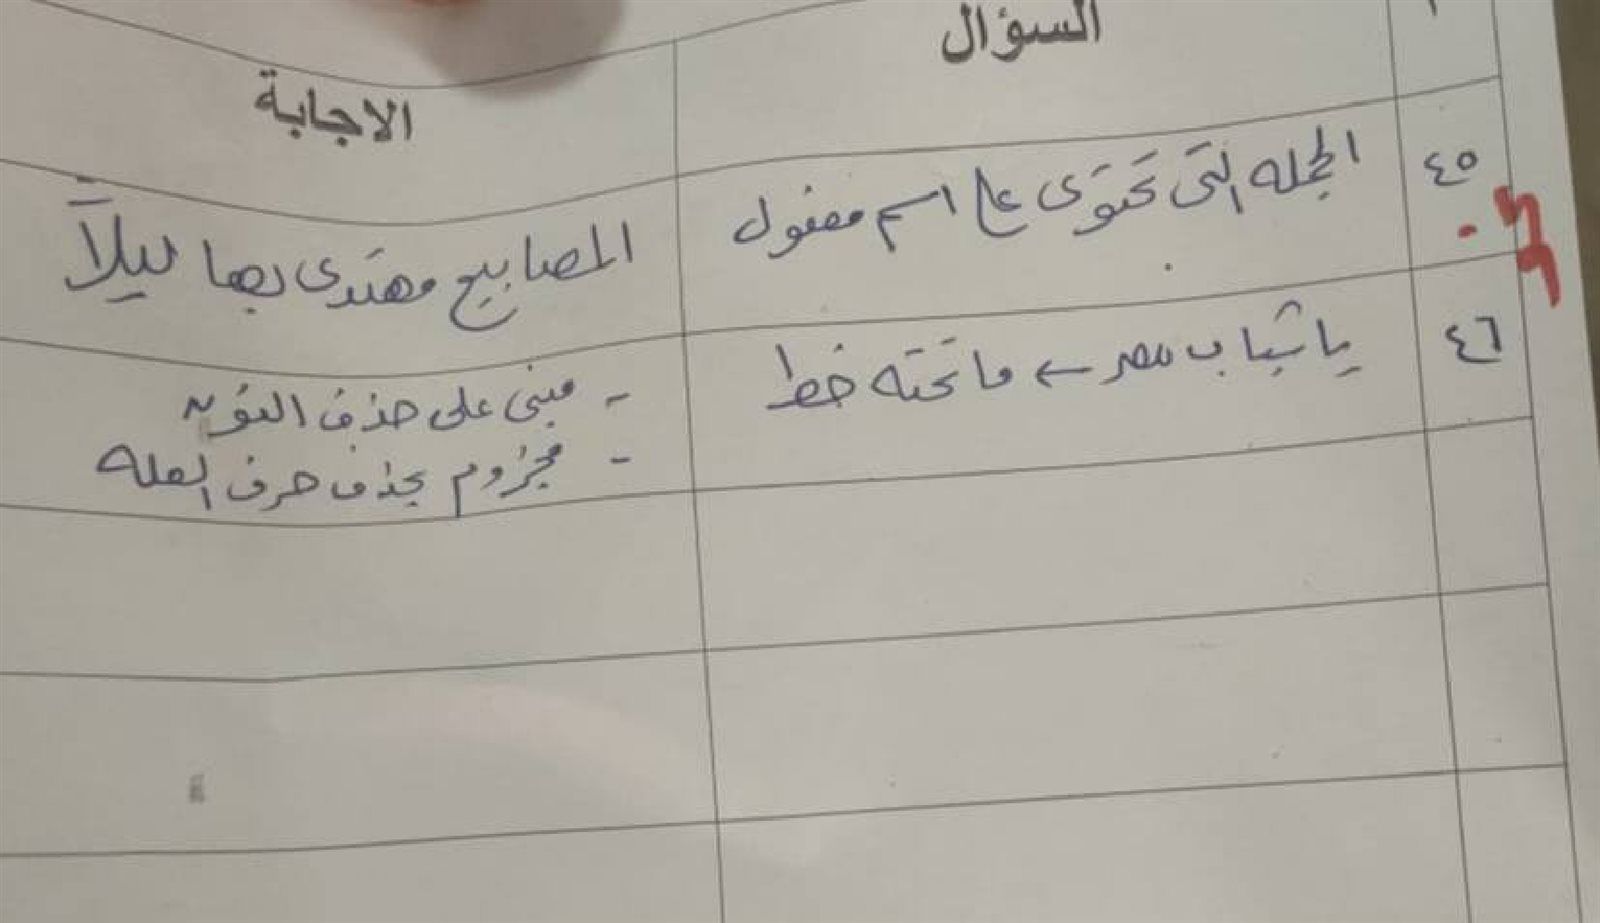 السؤال
الاجابة
٤٥
الجمله التى تحتوى على اسم مفعول
المصابيح مهتدى بها ليلاً
٤٦
يا شباب مصر ← ما تحته خط
- مبنى على حذف النون
- مجزوم بحذف حرف العله